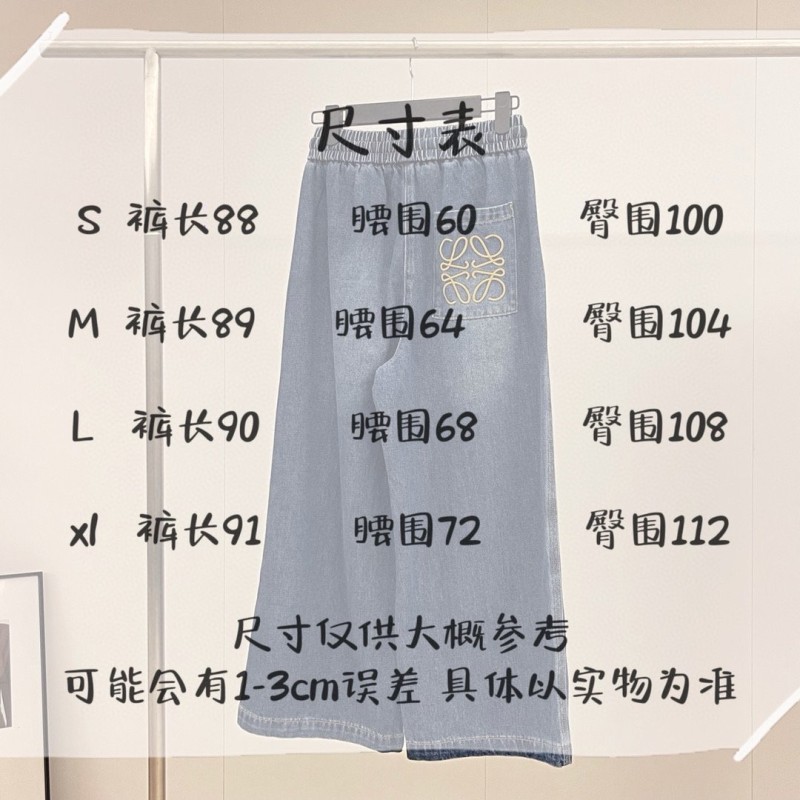 尺寸表
S 裤长88 腰围60 臀围100
M 裤长89 腰围64 臀围104
L 裤长90 腰围68 臀围108
xl 裤长91 腰围72 臀围112
尺寸仅供大概参考
可能会有1-3cm误差 具体以实物为准